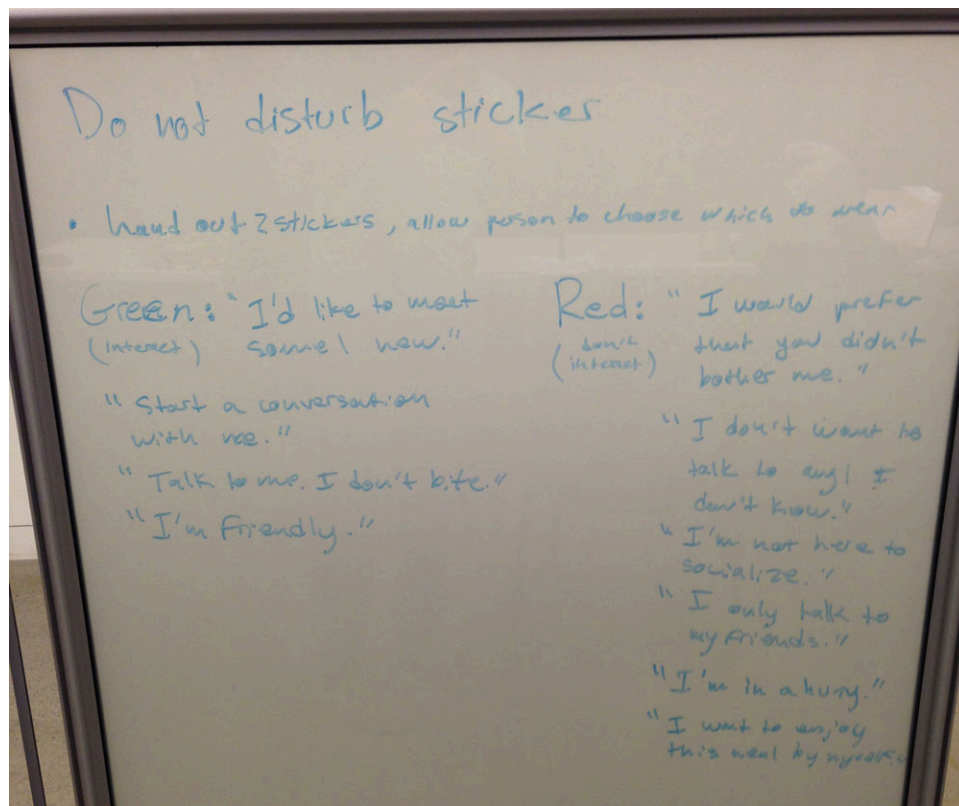 Do not disturb sticker
• hand out 2 stickers, allow person to choose which to wear
Green: "I'd like to meet
(interact) some1 new."
"Start a conversation
with me."
"Talk to me. I don't bite."
"I'm friendly."
Red: "I would prefer
(don't interact) that you didn't
bother me."
"I don't want to
talk to any1 I
don't know."
"I'm not here to
socialize."
"I only talk to
my friends."
"I'm in a hurry."
"I want to enjoy
this meal by myself."